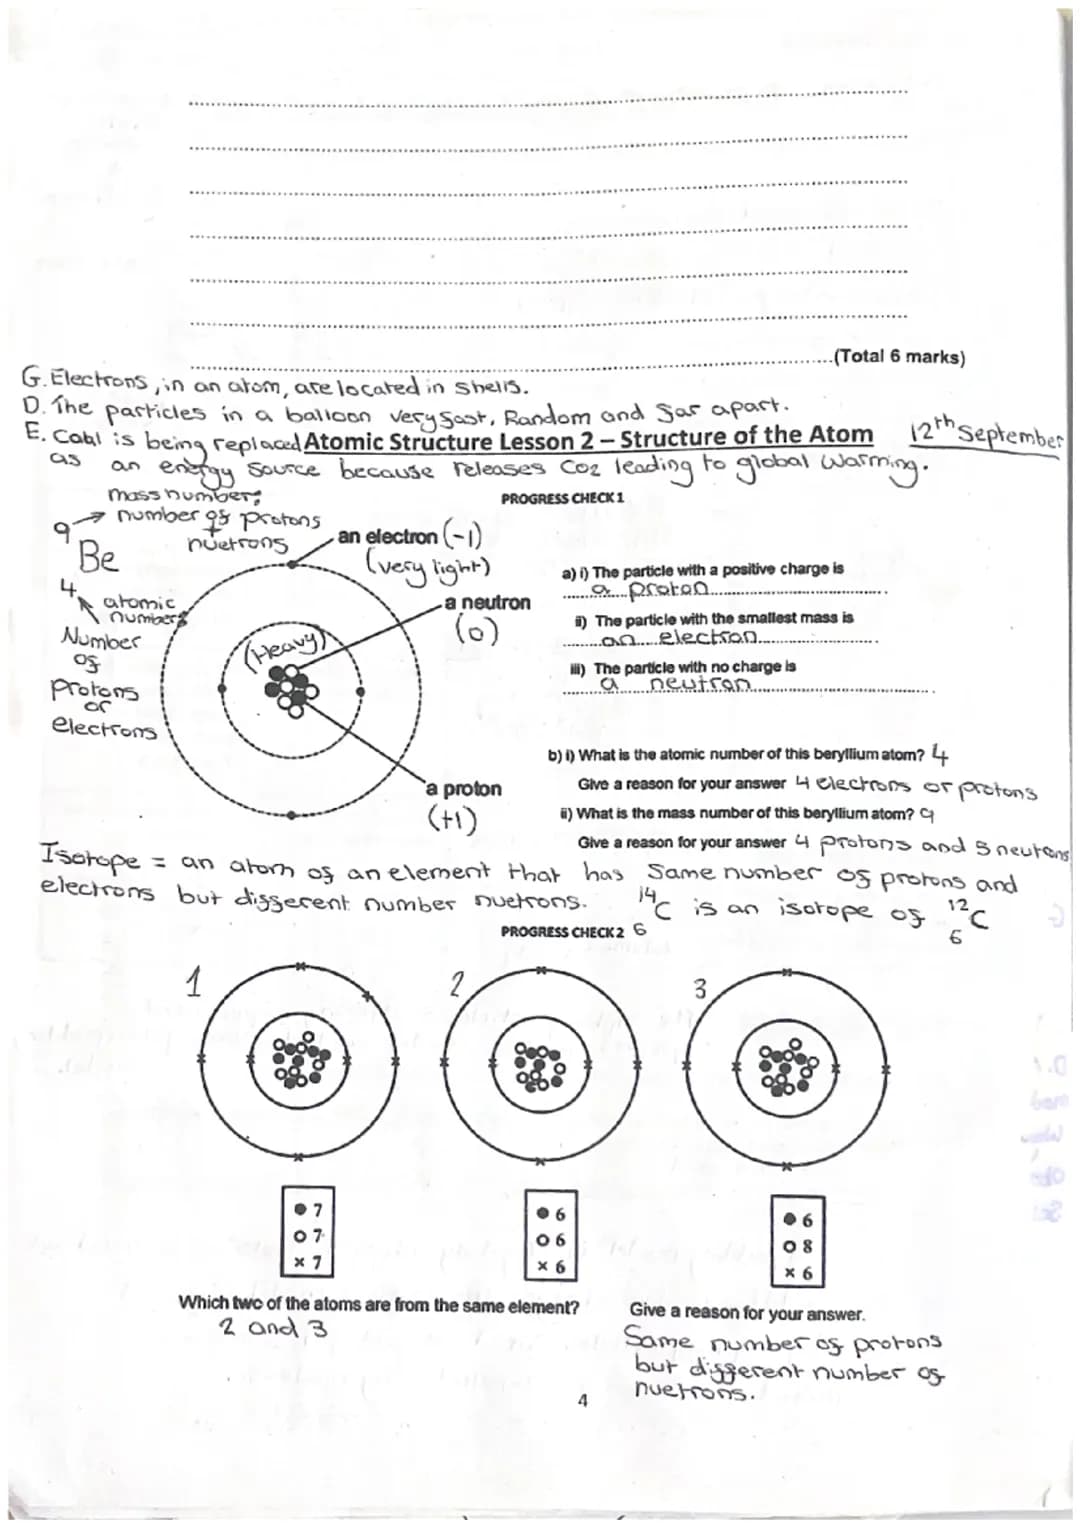 (Total 6 marks)
G. Electrons, in an atom, are located in shells.
D. The particles in a balloon very fast, Random and far apart.
E. Coal is being replaced Atomic Structure Lesson 2 – Structure of the Atom 12th September
as an energy source because releases CO2 leading to global warming.
PROGRESS CHECK 1
mass number:
number of protons
+
nuetrons
9
Be
4
atomic
number:
Number
of
Protons
or
electrons
an electron (-1)
(very light)
a neutron
(0)
(Heavy)
a proton
(+1)
a) i) The particle with a positive charge is
a proton
ii) The particle with the smallest mass is
an electron
iii) The particle with no charge is
a neutron
b) i) What is the atomic number of this beryllium atom? 4
Give a reason for your answer 4 electrons or protons
ii) What is the mass number of this beryllium atom? 9
Give a reason for your answer 4 protons and 5 neutrons
Isotope = an atom of an element that has Same number of protons and
electrons but different number nuetrons. 14 6 C is an isotope of 12 6 C
PROGRESS CHECK 2
1 2 3
● 7
○ 7
x 7
● 6
○ 6
x 6
● 6
○ 8
x 6
Which two of the atoms are from the same element?
2 and 3
Give a reason for your answer.
Same number of protons
but different number of
nuetrons.
4